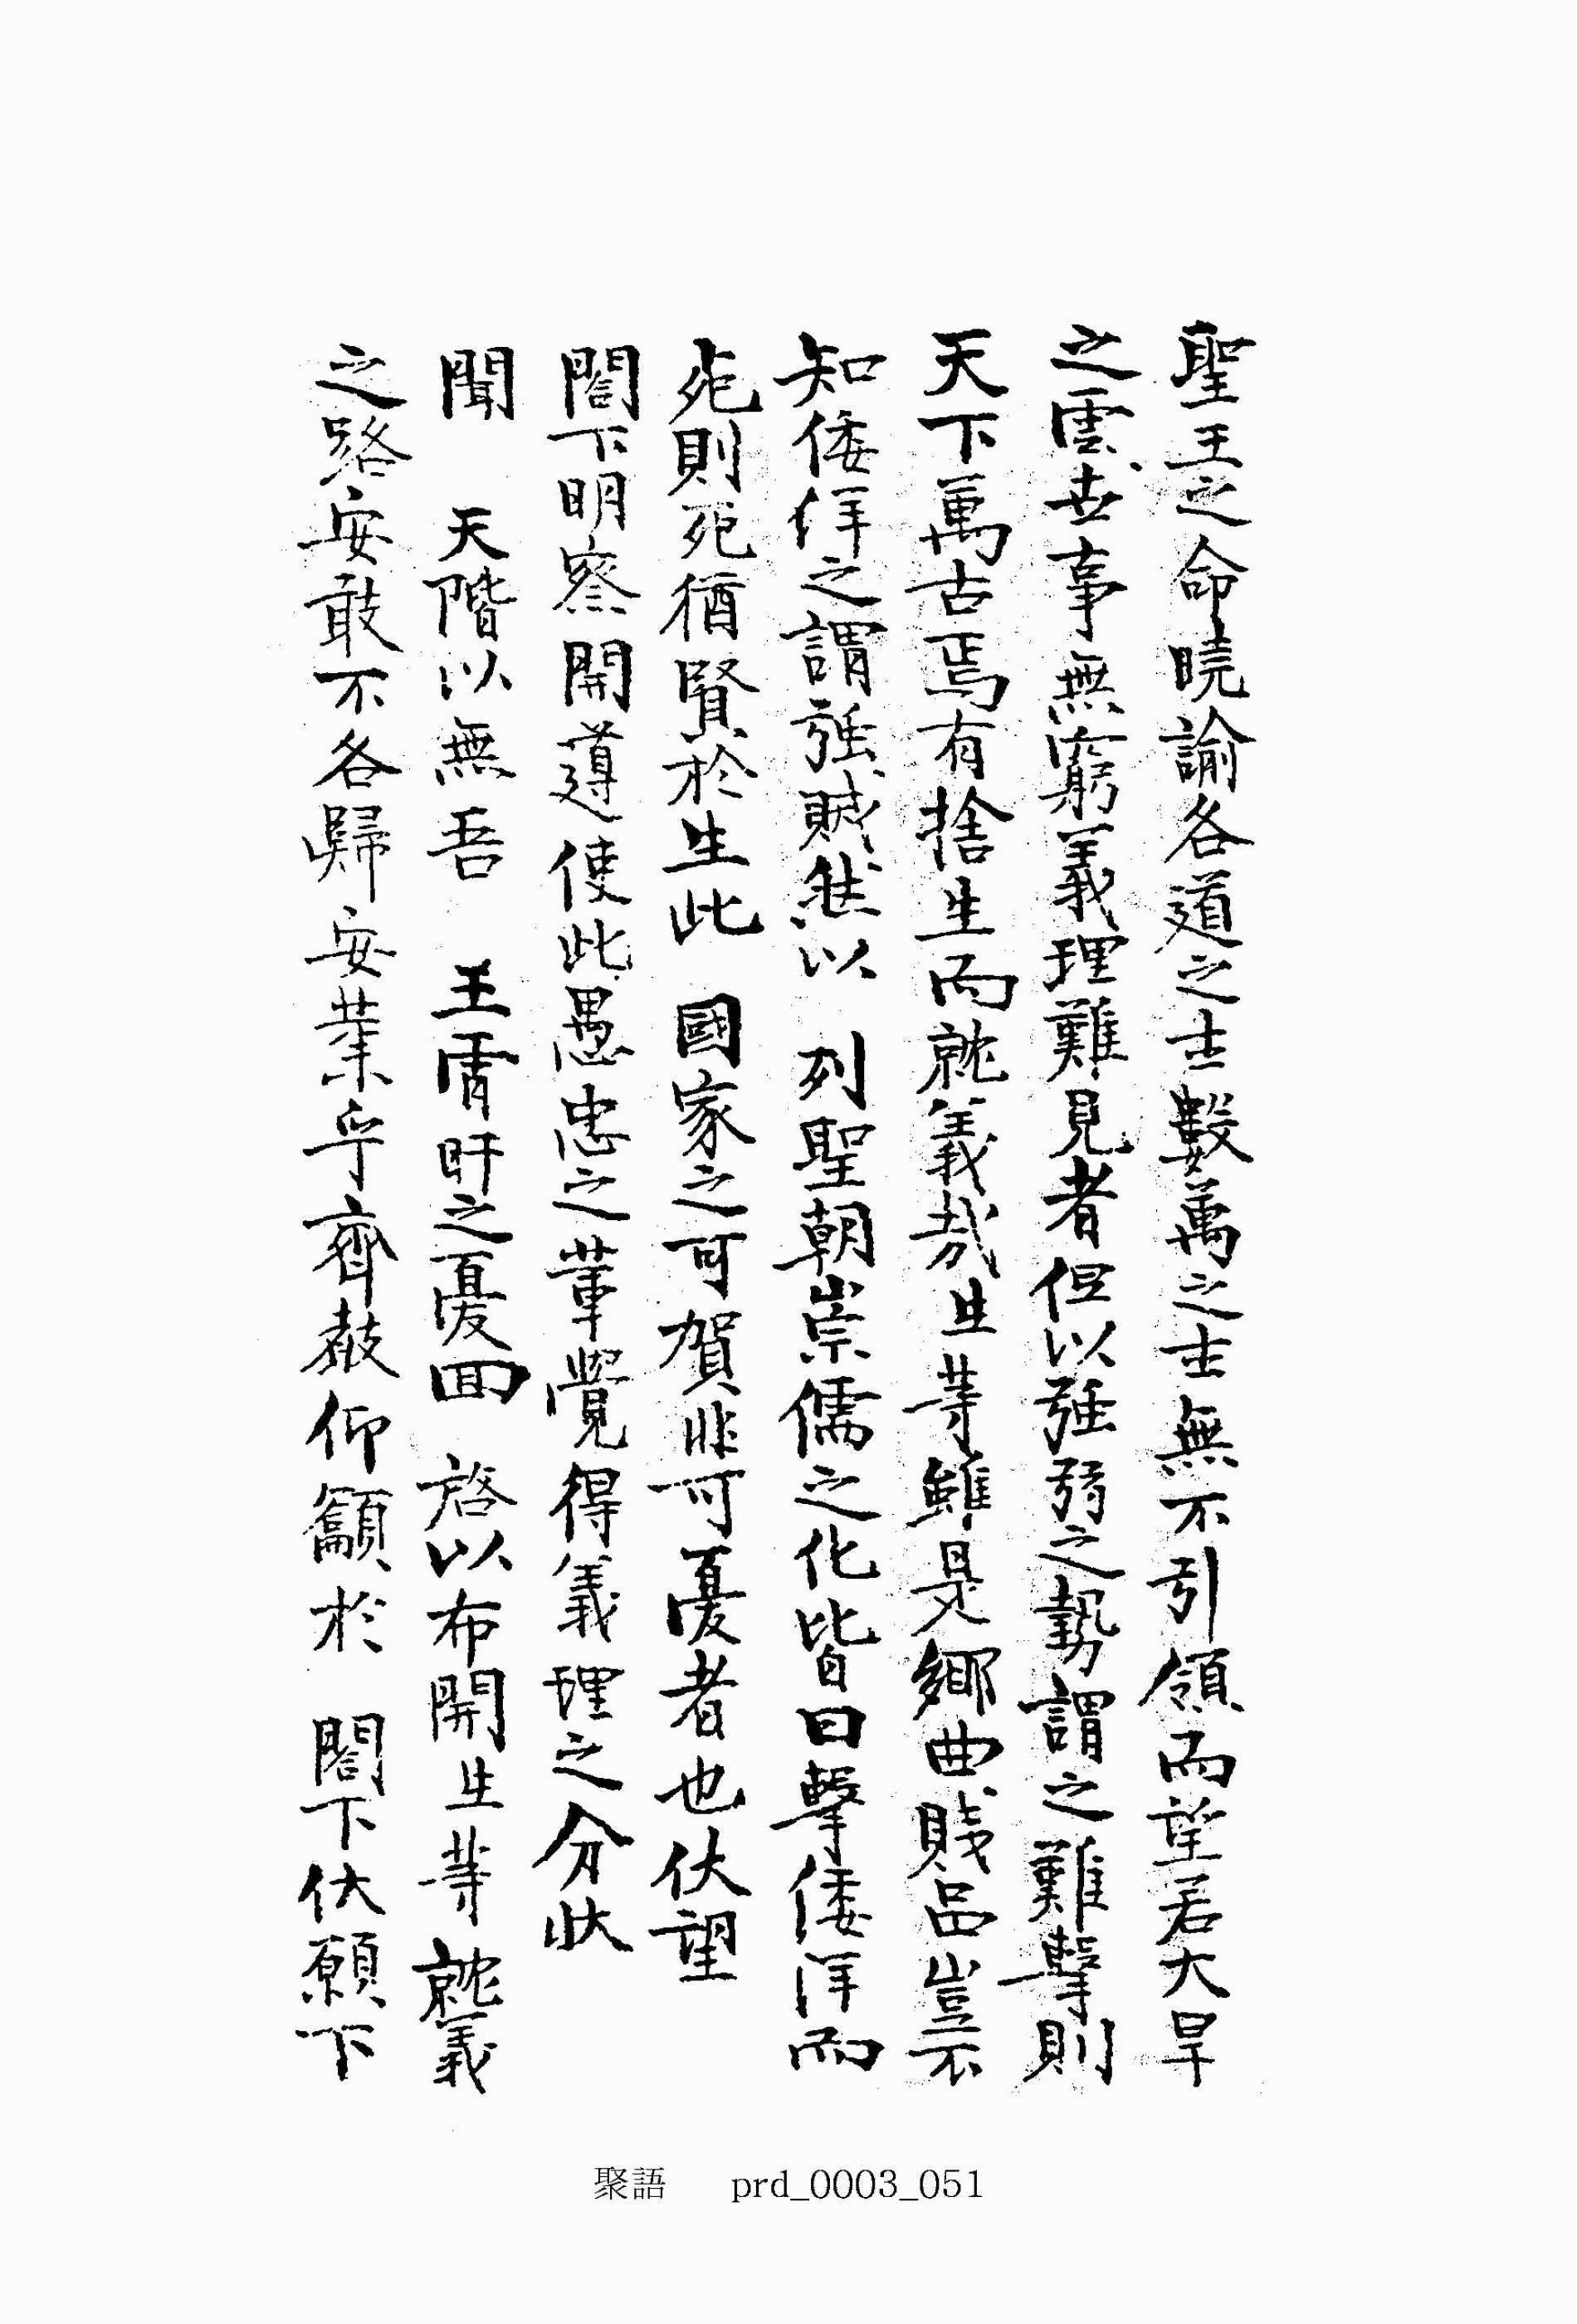 聖王之命曉諭各道之士數萬之士無不引領而望若大旱
之雲世事無窮義理難見者但以强弱之勢謂之難擊則
天下萬古焉有捨生而就義哉生等雖是鄕曲賤品豈不
知倭洋之謂强賊然以 列聖朝崇儒之化皆曰擊倭洋而
死則死猶賢於生此 國家之可賀非可憂者也伏望
閤下明察開導使此愚忠之輩覺得義理之分狀
聞 天階以無吾 王宵旰之憂回 啓以布開生等就義
之路安敢不各歸安業乎齊聲仰籲於 閤下伏願下
聚語 prd_0003_051